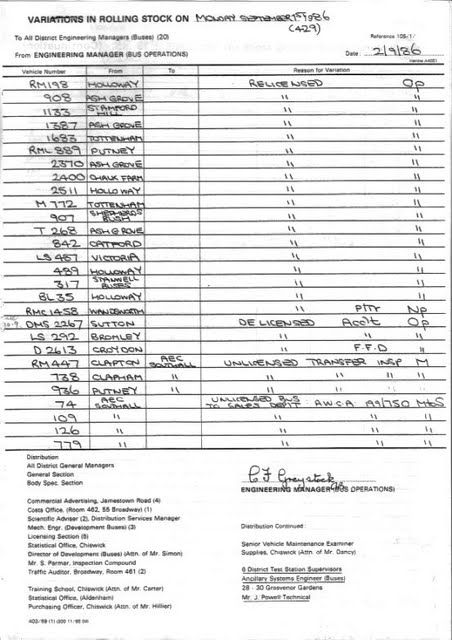 VARIATIONS IN ROLLING STOCK ON MONDAY SEPTEMBER 1st 1986
(429)
To All District Engineering Managers (Buses) (20)
Reference 105/1/
From ENGINEERING MANAGER (BUS OPERATIONS)
Date: 2/9/86
Vehicle Number From To Reason for Variation
RM198 HOLLOWAY RELICENSED Op
908 ASH GROVE " "
1133 STAMFORD HILL " "
1387 ASH GROVE " "
1683 TOTTENHAM " "
RML 889 PUTNEY " "
2370 ASH GROVE " "
2400 CHALK FARM " "
2511 HOLLOWAY " "
M 772 TOTTENHAM " "
907 SHEPHERDS BUSH " "
T 268 ASH GROVE " "
842 CATFORD " "
LS 487 VICTORIA " "
489 HOLLOWAY " "
317 STANWELL BUSES " "
BL 35 HOLLOWAY " "
RMC 1458 WANDSWORTH " Np
DMS 2267 SUTTON DELICENSED Acc't Op
LS 292 BROMLEY " "
D 2613 CROYDON " F.F.D "
RM 447 CLAPTON AEC SOUTHALL UNLICENSED TRANSFER INSP M
738 CLAPHAM " " " " "
936 PUTNEY " " " " "
74 AEC SOUTHALL UNLICENSED BUS TO SALES DEPT: A.W.C.A. A9/750 M&S
109 " " " " "
126 " " " " "
779 " " " " "
Distribution
All District General Managers
General Section
Body Spec. Section
C F Graystock
ENGINEERING MANAGER (BUS OPERATIONS)
Commercial Advertising, Jamestown Road (4)
Costs Office, (Room 462, 55 Broadway) (1)
Scientific Adviser (2), Distribution Services Manager
Mech. Engr. (Development Buses) (3)
Licensing Section (5)
Statistical Office, Chiswick
Director of Development (Buses) (Attn. of Mr. Simon)
Mr. S. Parmar, Inspection Compound
Traffic Auditor, Broadway, Room 461 (2)
Training School, Chiswick (Attn. of Mr. Carter)
Statistical Office, (Aldenham)
Purchasing Officer, Chiswick (Attn. of Mr. Hillier)
Distribution Continued:
Senior Vehicle Maintenance Examiner
Supplies, Chiswick (Attn. of Mr. Dancy)
6 District Test Station Supervisors
Ancillary Systems Engineer (Buses)
28 - 30 Grosvenor Gardens
Mr. J. Powell Technical